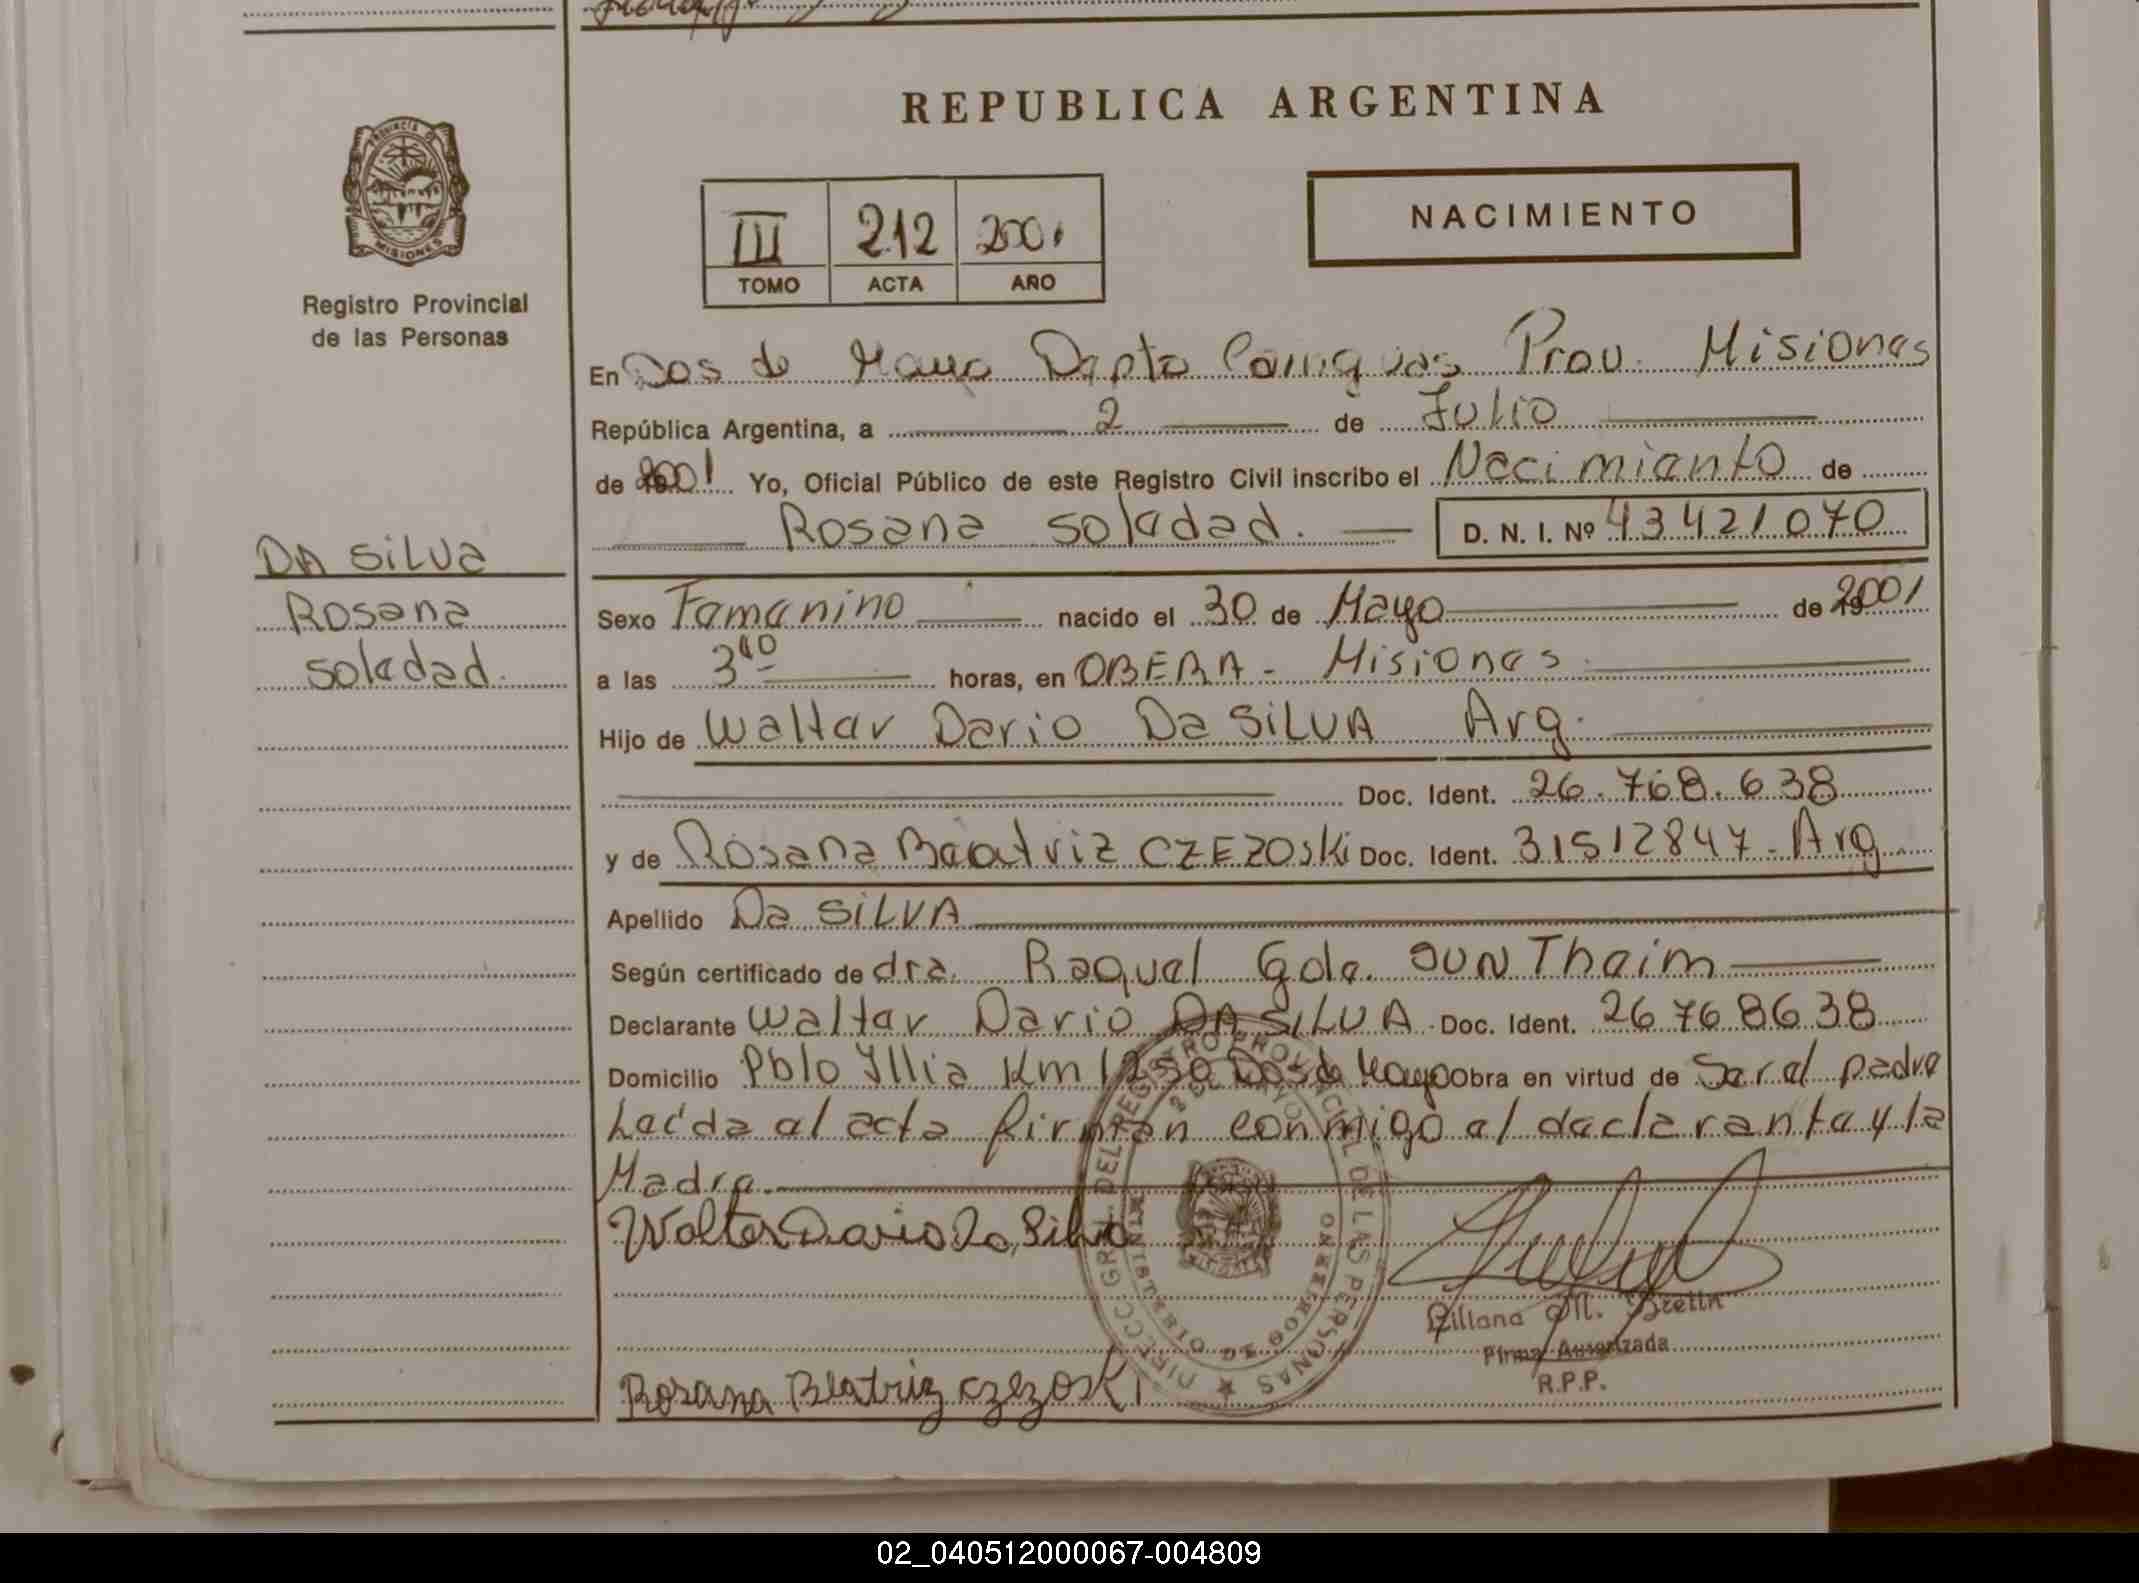 REPUBLICA ARGENTINA
PROVINCIA DE
MISIONES
Registro Provincial
de las Personas
III 212 2001
TOMO ACTA AÑO
NACIMIENTO
En Dos de Mayo Depto Cainguas Prov. Misiones
República Argentina, a 2 de Julio
de 2001 Yo, Oficial Público de este Registro Civil inscribo el Nacimiento de
Rosana Soledad. D. N. I. Nº 43421070
DA SILVA
Rosana
Soledad.
Sexo Femenino nacido el 30 de Mayo de 2001
a las 3 40 horas, en OBERA - Misiones.
Hijo de Walter Dario Da SILVA Arg.
Doc. Ident. 26.768.638
y de Rosana Beatriz CZEZOSki Doc. Ident. 31512847 - Arg
Apellido Da SILVA
Según certificado de dra. Raquel Gda. SUNThaim
Declarante Walter Dario DA SILVA Doc. Ident. 26768638
Domicilio Pblo Illia Km 1250 Dos de Mayo Obra en virtud de Ser el padre
Leída el acta firman conmigo el declarante y la
Madre.
Walter Dario Da Silva
DEL REGISTRO PROVINCIAL DE LAS PERSONAS
Liliana M.
Firma Autorizada
R.P.P.
Rosana Beatriz Czezoski
02_040512000067-004809